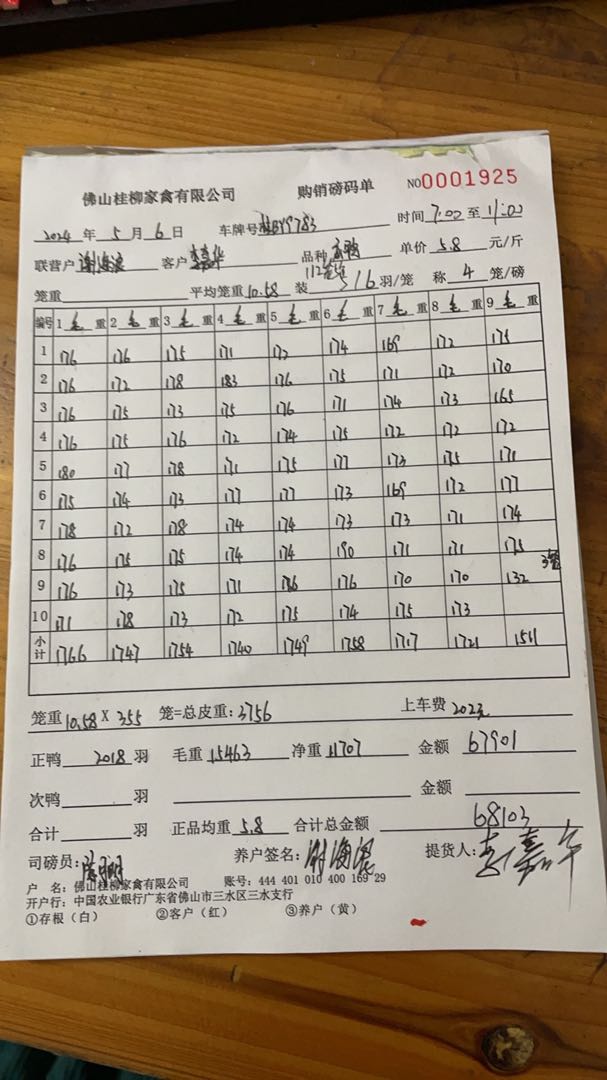 佛山桂柳家禽有限公司 购销磅码单 NO0001925
2024 年 5 月 6 日 车牌号 9783 时间 7:00 至 11:00
联营户 谢海滚 客户 李嘉华 品种 鸭 单价 5.8 元/斤
笼重 平均笼重 10.58 装 16 羽/笼 称 4 笼/磅
编号 1 毛 重 2 毛 重 3 毛 重 4 毛 重 5 毛 重 6 毛 重 7 毛 重 8 毛 重 9 毛 重
1 176 176 175 171 172 174 169 172 175
2 176 172 178 183 176 175 171 172 170
3 176 175 173 175 176 171 174 173 165
4 176 175 176 172 174 175 172 172 172
5 180 177 178 171 175 177 173 175 171
6 175 174 173 177 177 173 169 172 177
7 178 172 178 174 174 173 173 171 174
8 176 175 175 174 174 190 171 171 175
9 176 173 175 171 176 170 170 132
10 171 178 173 172 175 174 175 173
小计 1766 1747 1754 1740 1749 1758 1717 1721 1511
笼重 10.58 X 355 笼=总皮重: 3756 上车费 202元
正鸭 2018 羽 毛重 15463 净重 11707 金额 67901
次鸭 羽 金额
合计 羽 正品均重 5.8 合计总金额 68103
司磅员: 养户签名: 谢海滚 提货人: 李嘉华
户 名: 佛山桂柳家禽有限公司 账号: 444 401 010 400 169 29
开户行: 中国农业银行广东省佛山市三水区三水支行
①存根(白) ②客户(红) ③养户(黄)